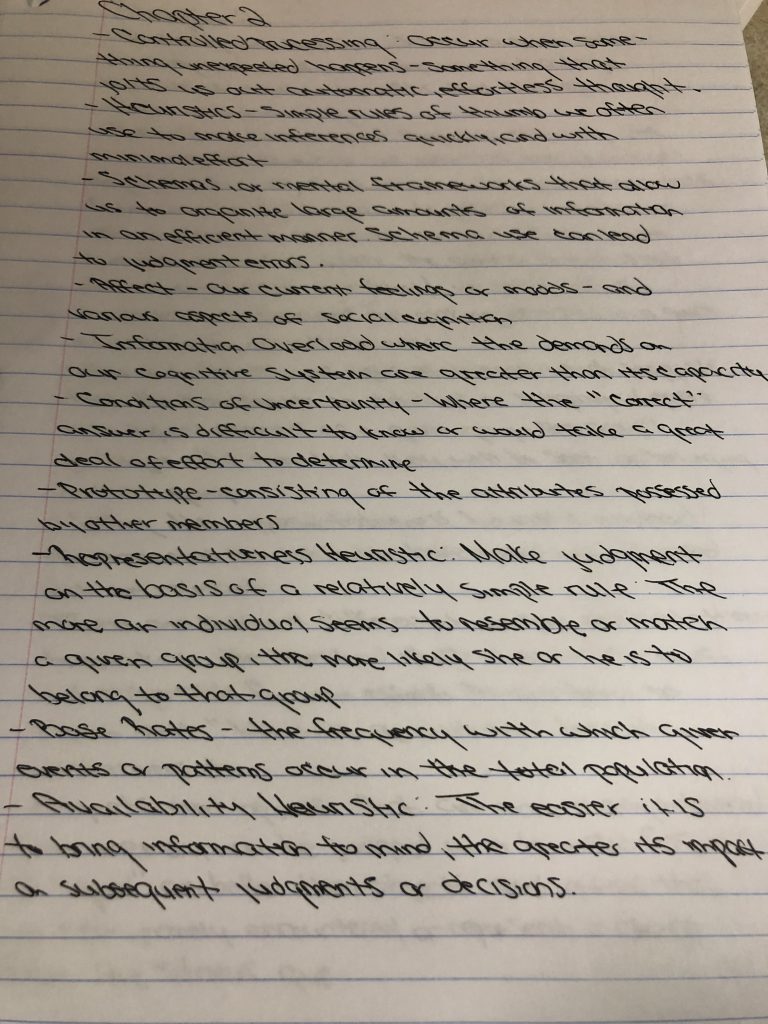 Chapter 2
- Controlled Processing: Occur when some-
thing unexpected happens - something that
jolts us out automatic, effortless thought.
- Heuristics - simple rules of thumb we often
use to make inferences quickly, and with
minimal effort
- Schemas, or mental frameworks that allow
us to organize large amounts of information
in an efficient manner. Schema use can lead
to judgment errors.
- Affect - our current feelings or moods - and
various aspects of social cognition
- Information Overload where the demands on
our cognitive system are greater than its capacity
- Conditions of Uncertainty - Where the "correct"
answer is difficult to know or would take a great
deal of effort to determine
- Prototype - consisting of the attributes possessed
by other members
- Representativeness Heuristic: Make judgment
on the basis of a relatively simple rule: The
more an individual seems to resemble or match
a given group, the more likely she or he is to
belong to that group
- Base Rates - the frequency with which given
events or patterns occur in the total population.
- Availability Heuristic: The easier it is
to bring information to mind, the greater its impact
on subsequent judgments or decisions.